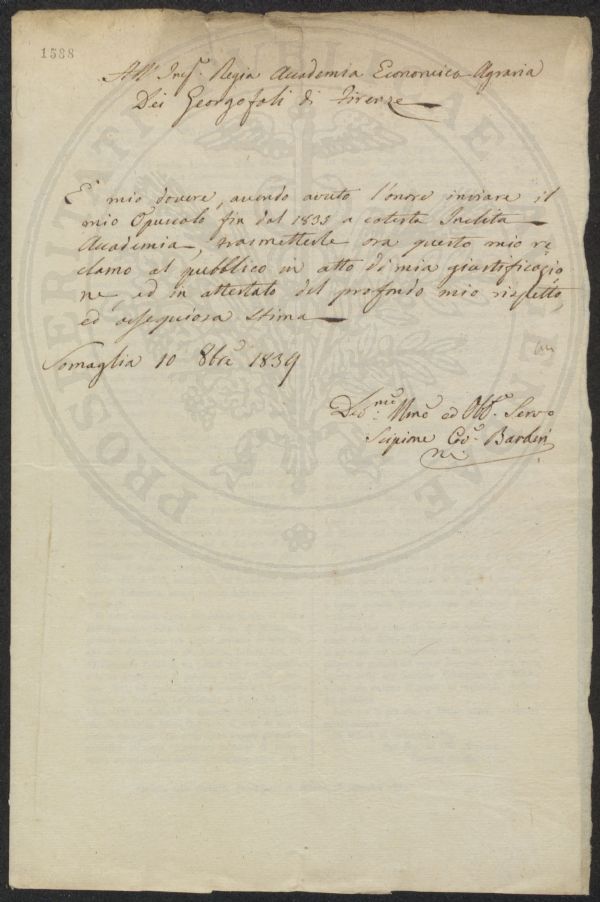 1588
All' Imp. Regia Accademia Economico Agraria
Dei Georgofali di Firenze
E' mio dovere, avendo avuto l'onore inviare il
mio Opuscolo fin dal 1835 a cotesta Inclita
Accademia, trasmetterle ora questo mio re
clamo al pubblico in atto di mia giustificazio
ne, ed in attestato del profondo mio rispetto,
ed ossequiosa stima
Somaglia 10 8bre 1839
Dev.mo Umo ed Obb. Servo
Scipione Bardi
ni
PROSPERITATI PUBLICAE